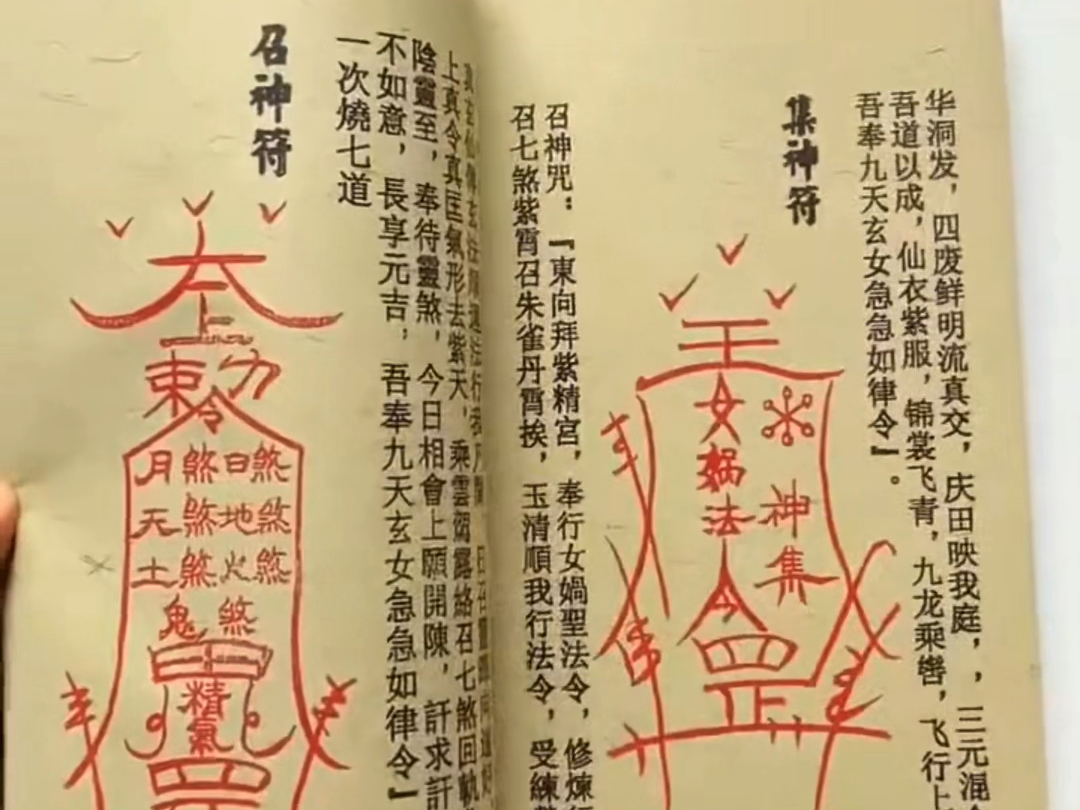 华洞发，四废鲜明流真交，庆田映我庭，，三元混
吾道以成，仙衣紫服，锦裳飞青，九龙乘辔，飞行上
吾奉九天玄女急急如律令』。
集神符
王
女媧法
神集
令
正
召神咒：『東向拜紫精宮，奉行女媧聖法令，修煉
召七煞紫霄召朱雀丹霄挨，玉清順我行法令，受練
上真令真匡氣形去紫天，乘雲駕露絡召七煞回軌
陰靈至，奉待靈煞，今日相會上願開陳，訐求訐
不如意，長享元吉，吾奉九天玄女急急如律令』
一次燒七道
召神符
敕令
月煞日煞
天煞地煞
土煞火煞
鬼煞
精氣